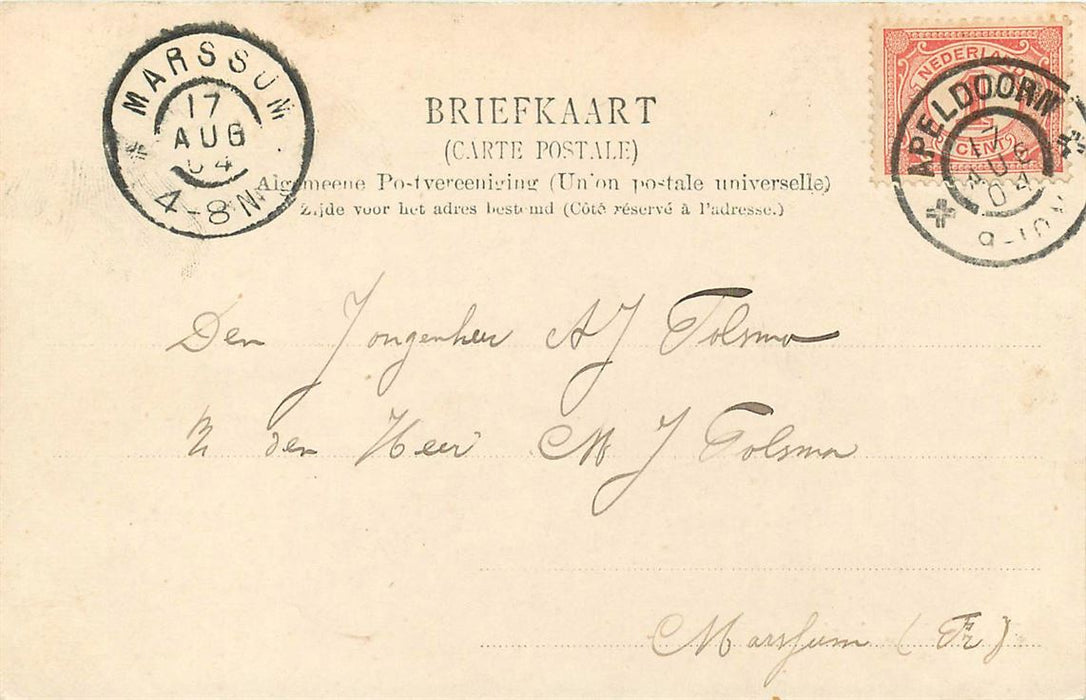 MARSSUM
17
AUG
04
4-8N
BRIEFKAART
(CARTE POSTALE)
Algemeene Postvereeniging (Union postale universelle)
Zijde voor het adres bestemd (Côté réservé à l'adresse.)
NEDERLAND
CENT
APELDOORN
17
AUG
04
9-10V
Den Jongenheer A J Tolsma
den Heer M J Tolsma
Marssum (Fr)